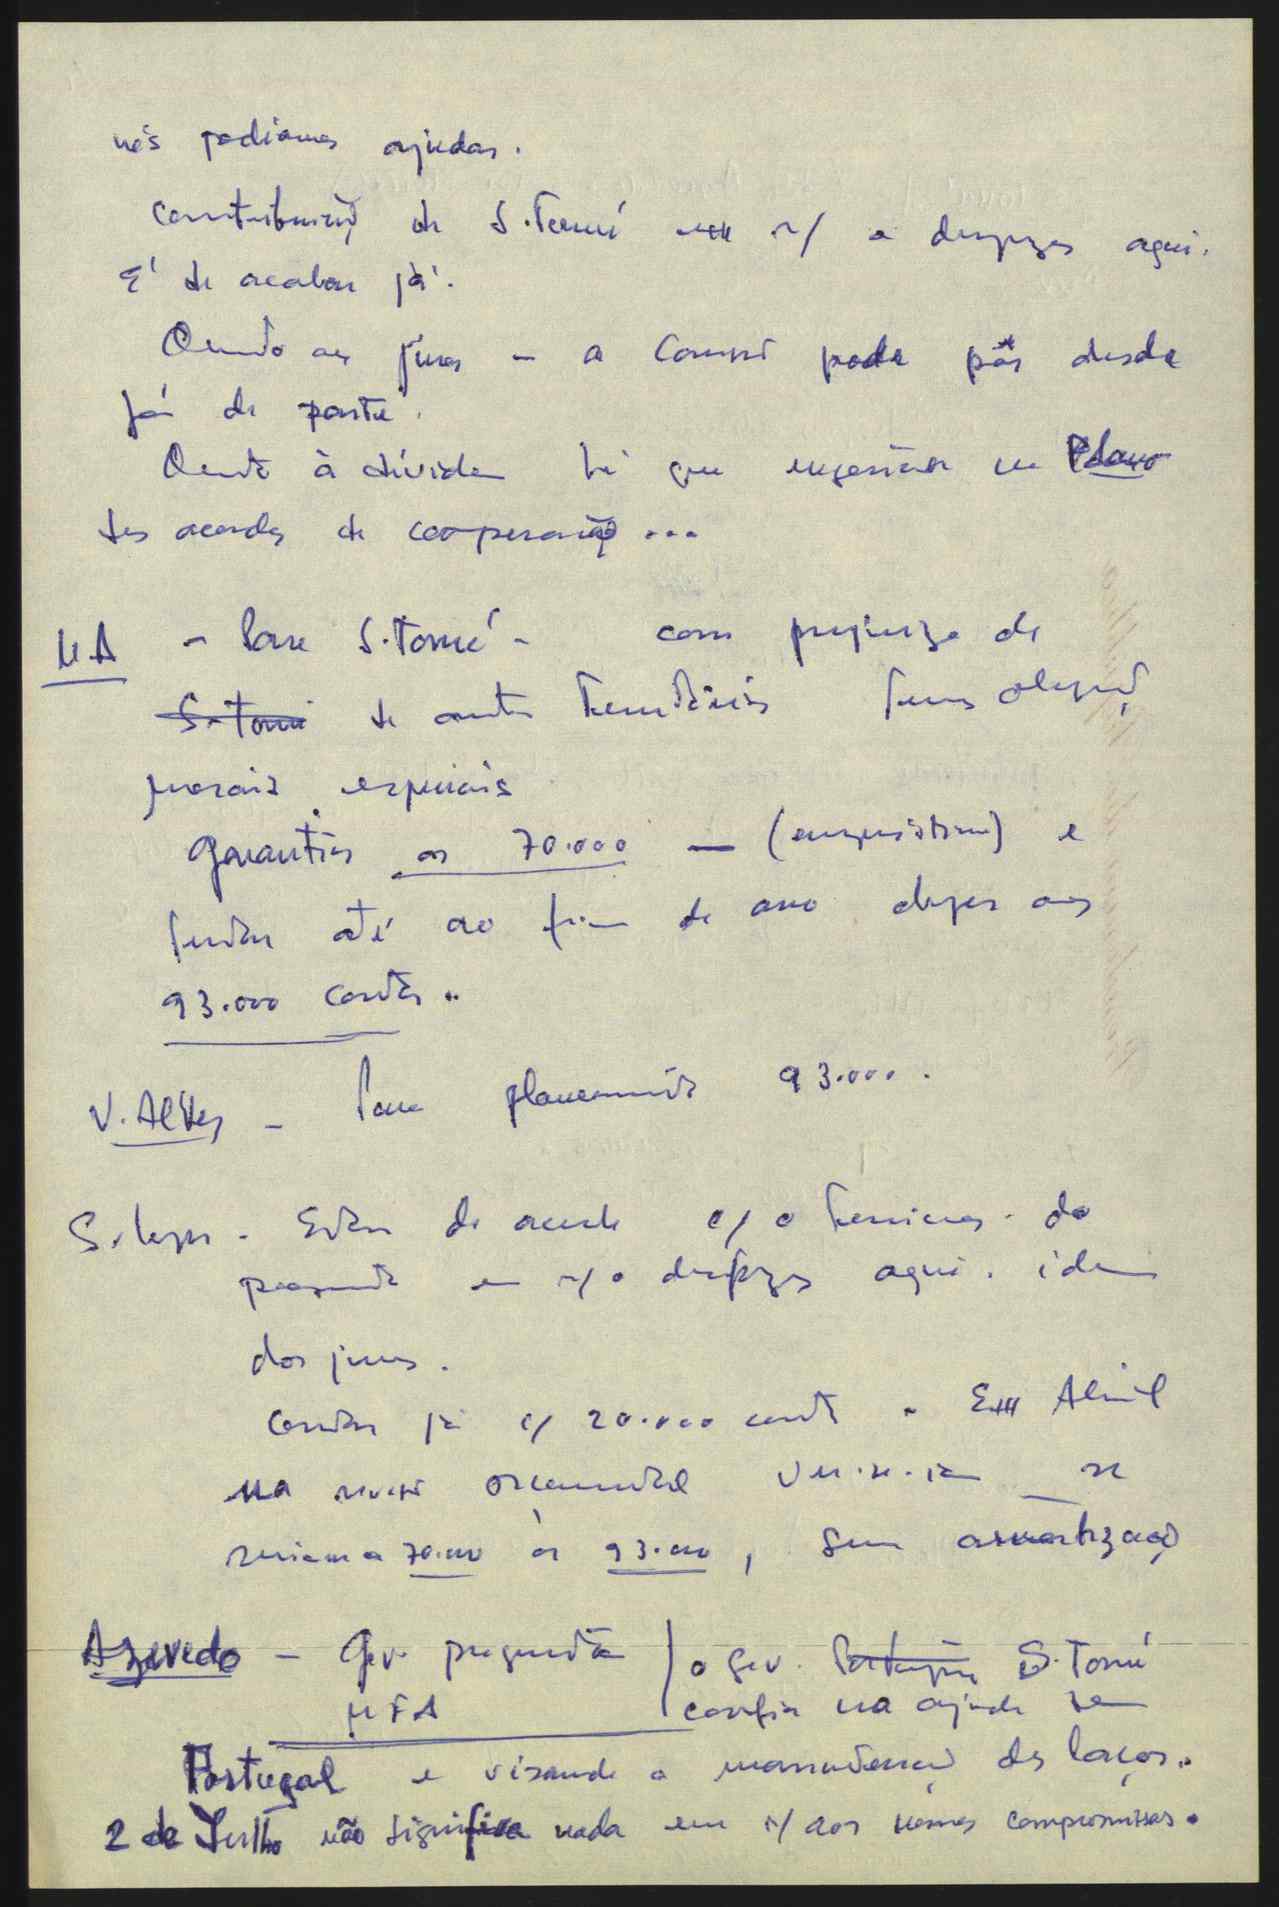 nós podíamos ajudar.
Contribuição de S. Tomé em r/ a despezas aqui.
É de acabar já.
Quanto aos juros - a Comissão pode pôr desde
já de parte.
Quanto à dívida há que negociar no Plano
dos acordos de cooperação ...
M.A - Para S. Tomé - com prejuízo de
S. Tomé de outros Territórios temos obrigações
morais especiais
Garantir os 70.000 - (empréstimo) e
tentar até ao fim do ano chegar aos
93.000 contos..
V. Alves - Para planeamento 93.000.
S. Lopes - Estar de acordo c/ o do
pagamento em r/ a despezas aqui. idem
dos juros.
Contar já c/ 20.000 contos. Em Abril
na revisão orçamental ver-se-ia se
seriam a 70.000 ou 93.000, sem amortização
Azevedo - Gov. pergunta | o gov. S. Tomé
MFA | confia na ajuda de
Portugal e visando a manutenção dos laços.
2 de Julho não significa nada em r/ aos nossos compromissos.